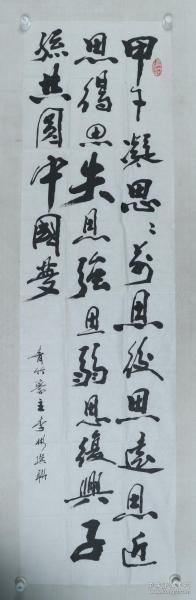 甲午凝思:前思後思遠思近
思得思失思強思弱思復興子
孫共圓中國夢
青竹齋主李彬撰聯